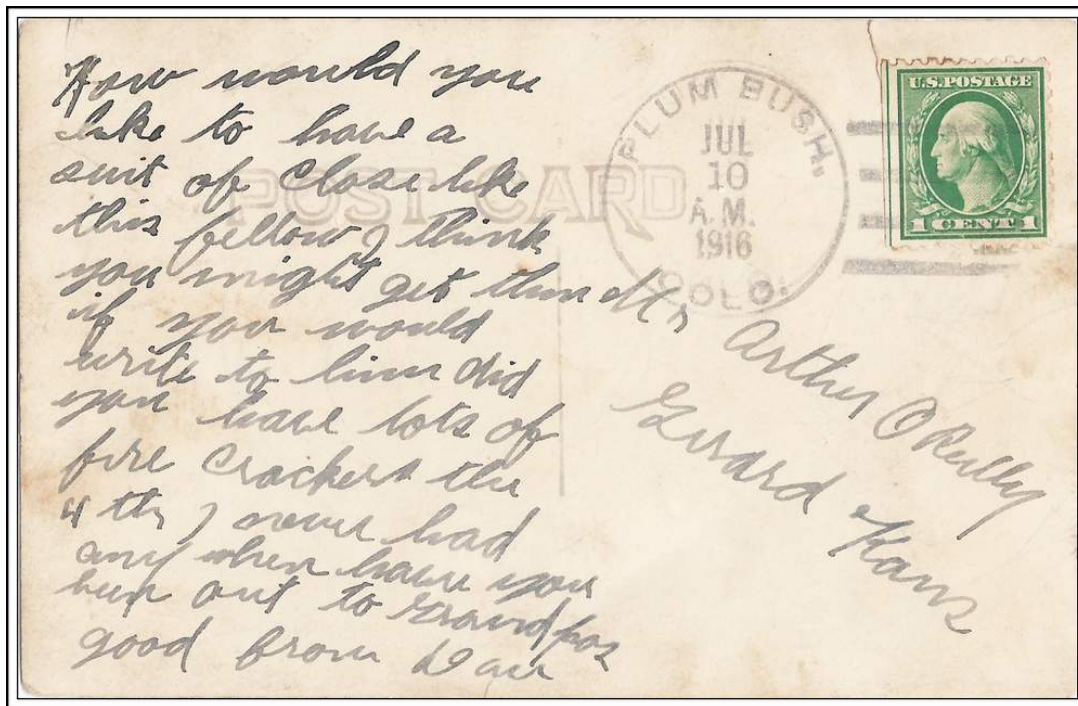 How would you
like to have a
suit of close like
this fellow I think
you might get them
if you would
write to him did
you have lots of
fire crackers the
4 th I never had
any when have you
bun out to Grandpas
good from Dau
POST CARD
PLUM BUSH.
JUL
10
A.M.
1916
COLO.
U.S. POSTAGE
1 CENT 1
Mr Arthur OReilly
Girard Kans